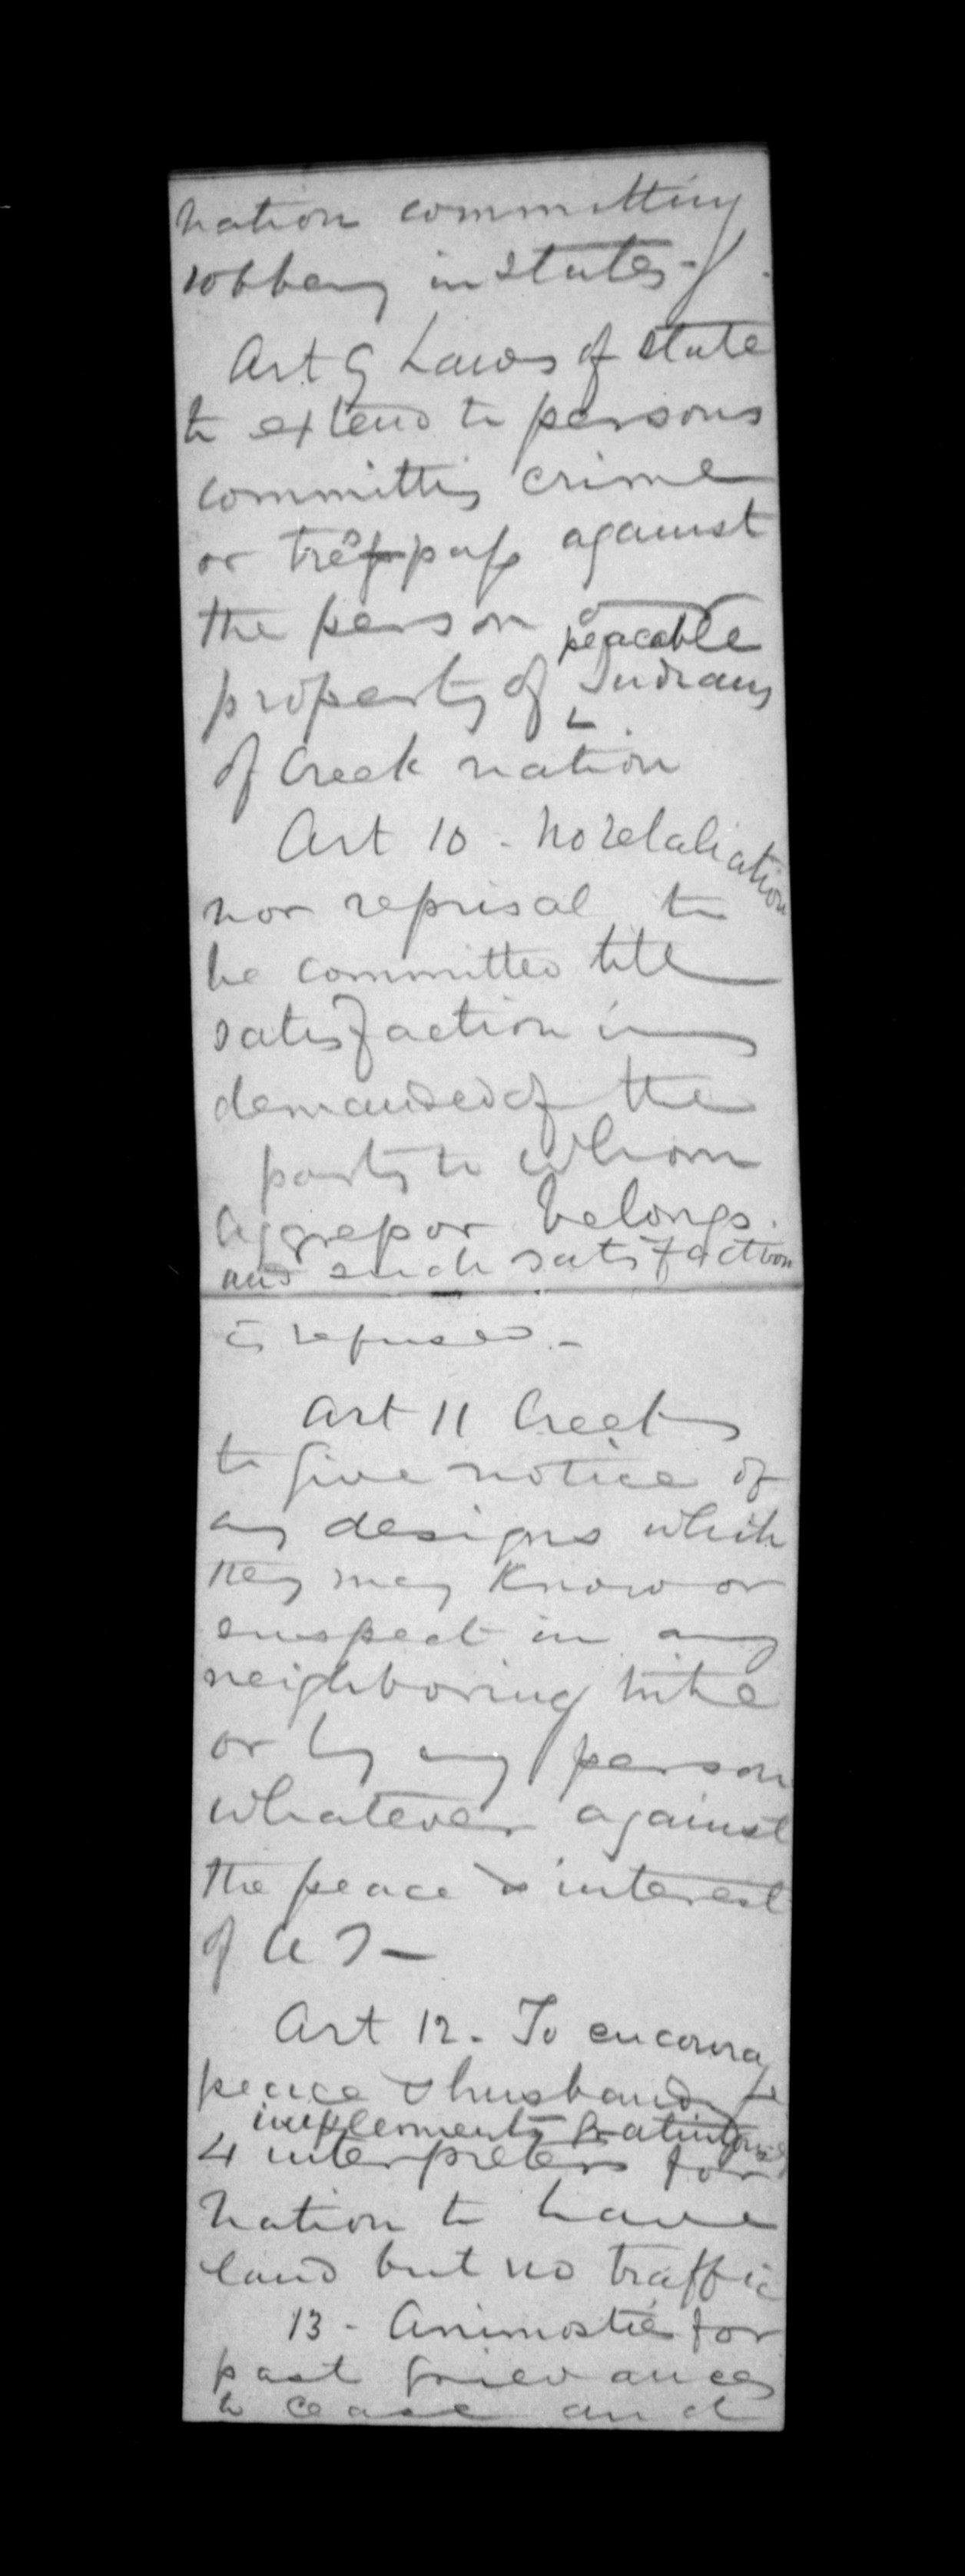 nation committing
robbery in states -
Art 9 Laws of state
to extend to persons
committing crime
or trespass against
the person or
peaceable
property of Indians
of Creek nation
Art 10 - No retaliation
nor reprisal to
be committed till
satisfaction is
demanded of the
party to whom
aggressor belongs.
and such satisfaction
is refused. -
Art 11 Creeks
to give notice of
any designs which
they may know or
suspect in any
neighboring tribe
or by any person
whatever against
the peace & interest
of U S -
Art 12. To encourag
peace & husbandry
implements &
4 interpreters for
nation to have
land but no traffic
13 - Animosties for
past grievances
to cease and